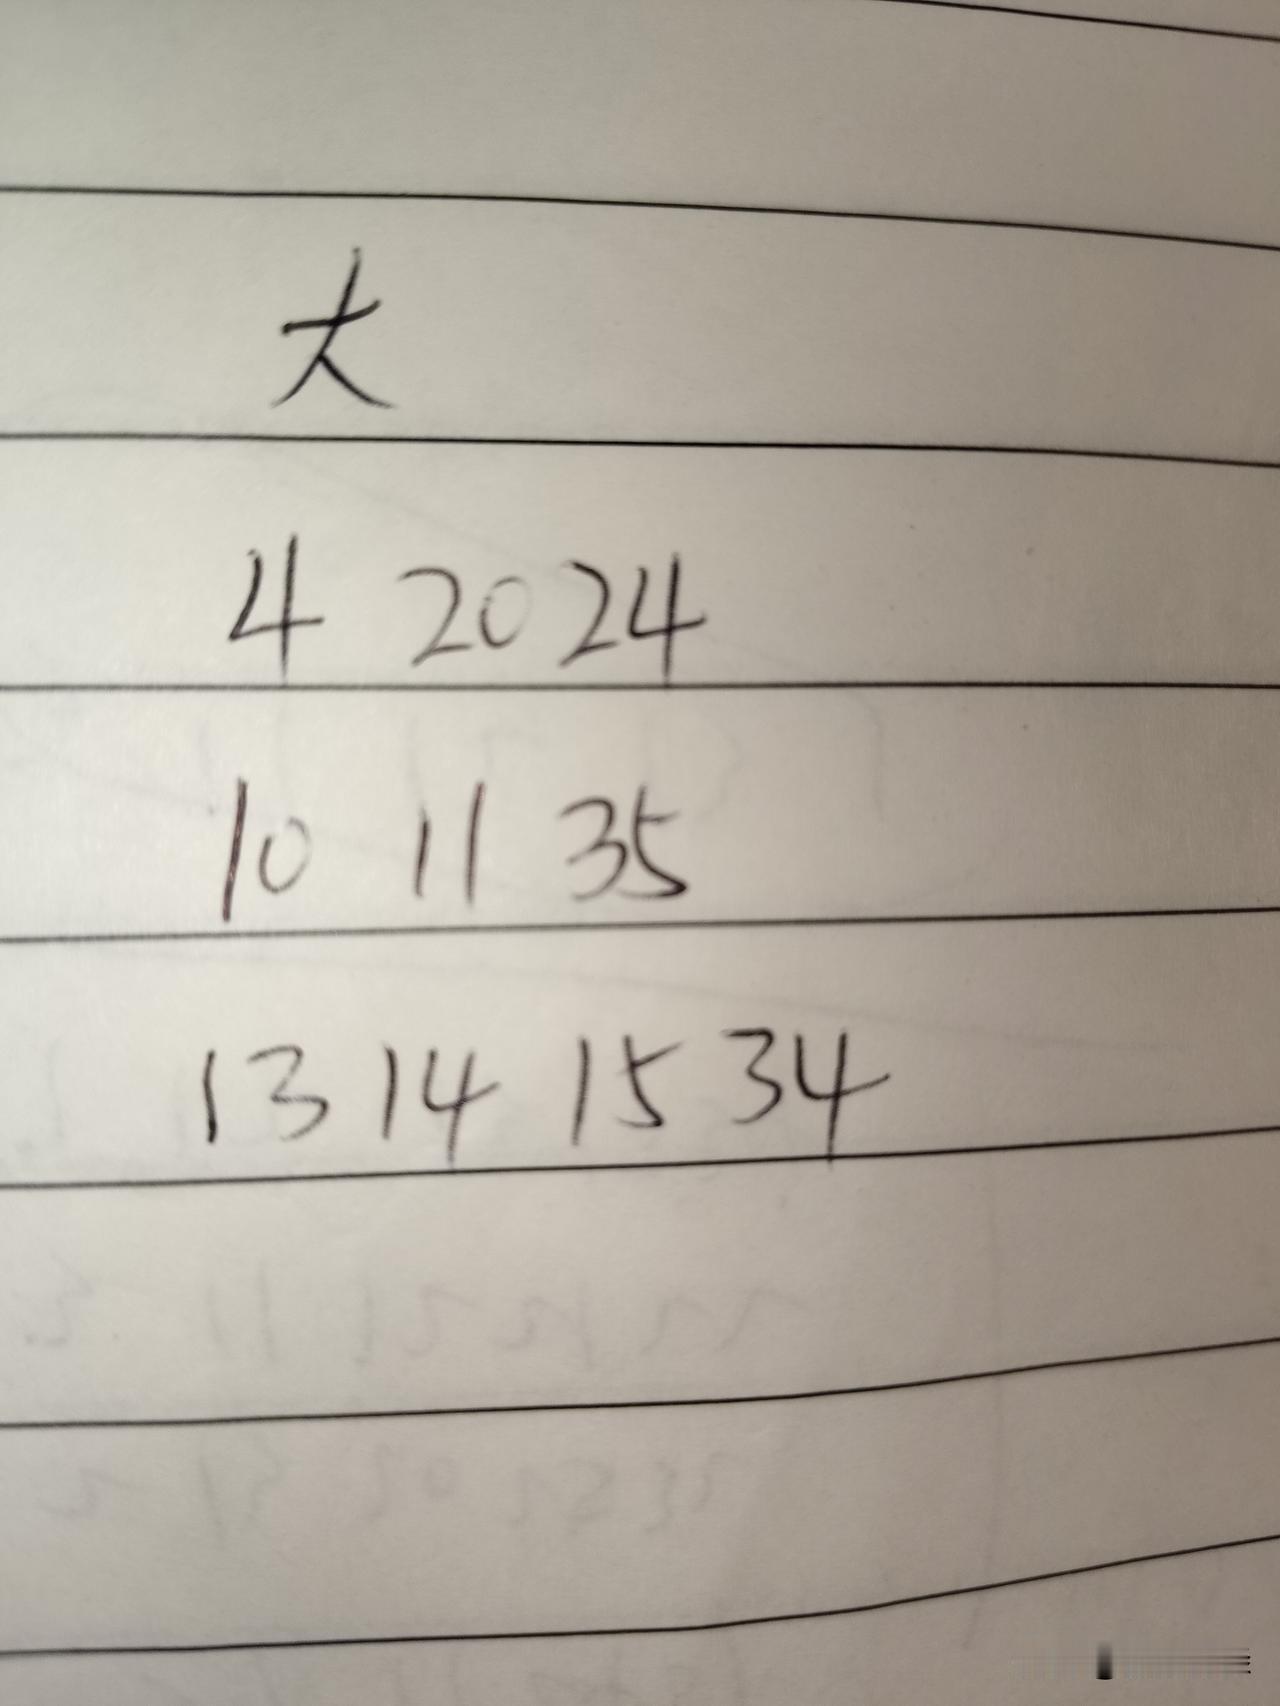 大
4 20 24
10 11 35
13 14 15 34